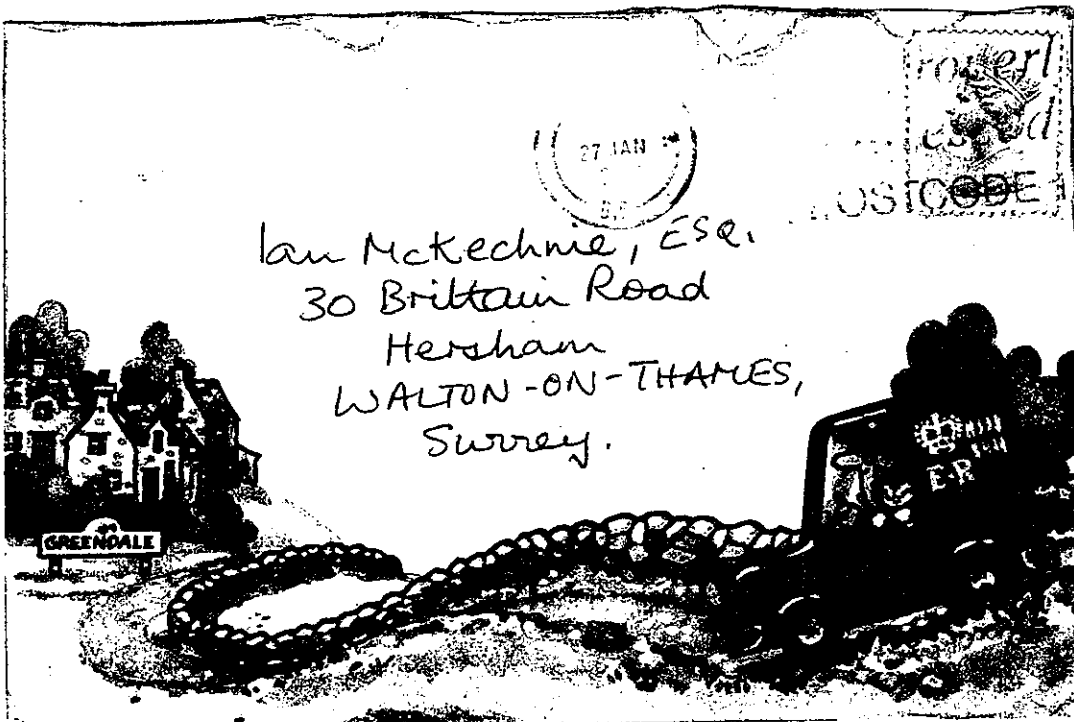 27 JAN
POSTCODE
Ian McKechnie, Esq.
30 Brittain Road
Hersham
WALTON-ON-THAMES,
Surrey.
E·R
GREENDALE